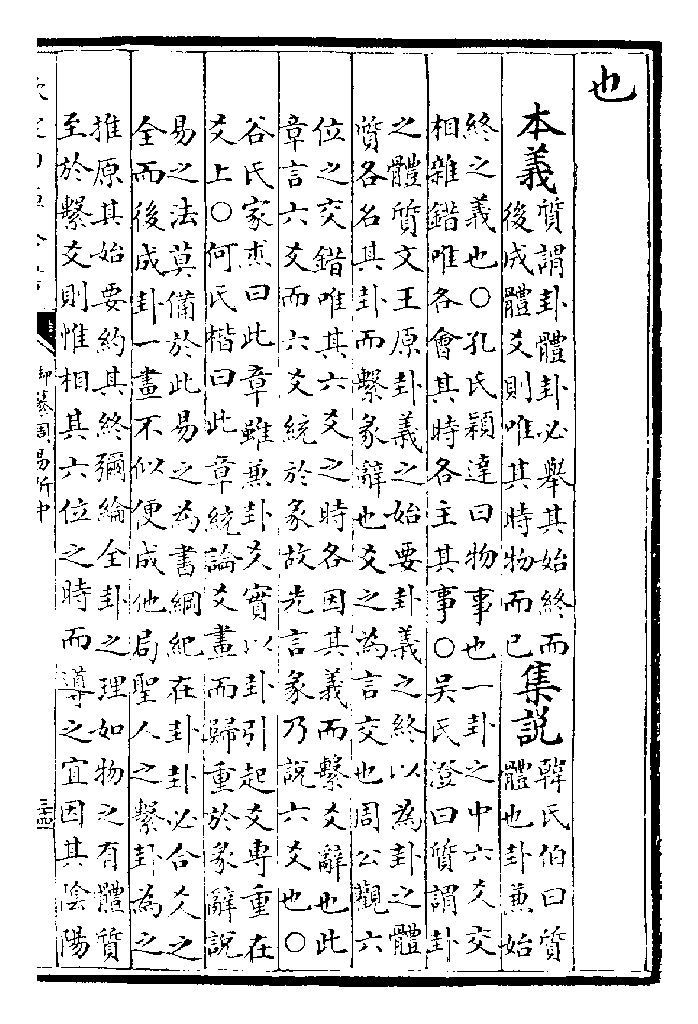 也
本義
質謂卦體卦必舉其始終而
後成體爻則唯其時物而已
集説
韓氏伯曰質
體也卦兼始
終之義也○孔氏穎達曰物事也一卦之中六爻交
相雜錯唯各會其時各主其事○吳氏澄曰質謂卦
之體質文王原卦義之始要卦義之終以為卦之體
質各名其卦而繫彖辭也爻之為言交也周公觀六
位之交錯唯其六爻之時各因其義而繫爻辭也此
章言六爻而六爻統於彖故先言彖乃説六爻也○
谷氏家杰曰此章雖兼卦爻實以卦引起爻專重在
爻上○何氏楷曰此章統論爻畫而歸重於彖辭説
易之法莫備於此易之為書綱紀在卦卦必合爻之
全而後成卦一畫不似便成他局聖人之繫卦為之
推原其始要約其終彌綸全卦之理如物之有體質
至於繫爻則惟相其六位之時而導之宜因其陰陽
御纂周易折中